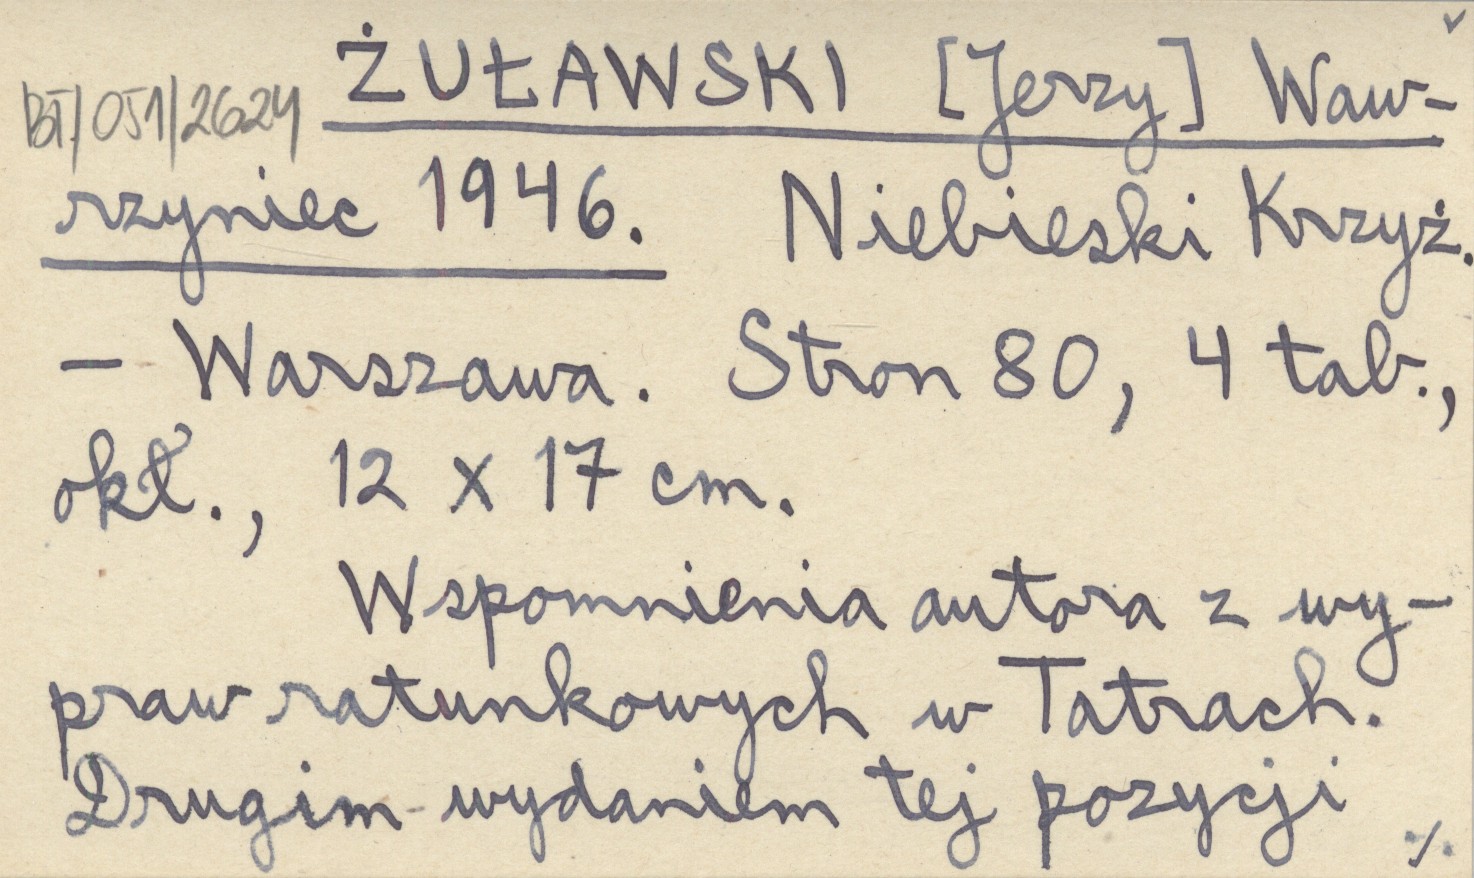 ŻUŁAWSKI [Jerzy] Waw-
BT/051/2624
rzyniec 1946. Niebieski Krzyż.
- Warszawa. Stron 80, 4 tab.,
okł., 12 x 17 cm.
Wspomnienia autora z wy-
praw ratunkowych w Tatrach.
Drugim wydaniem tej pozycji
./.